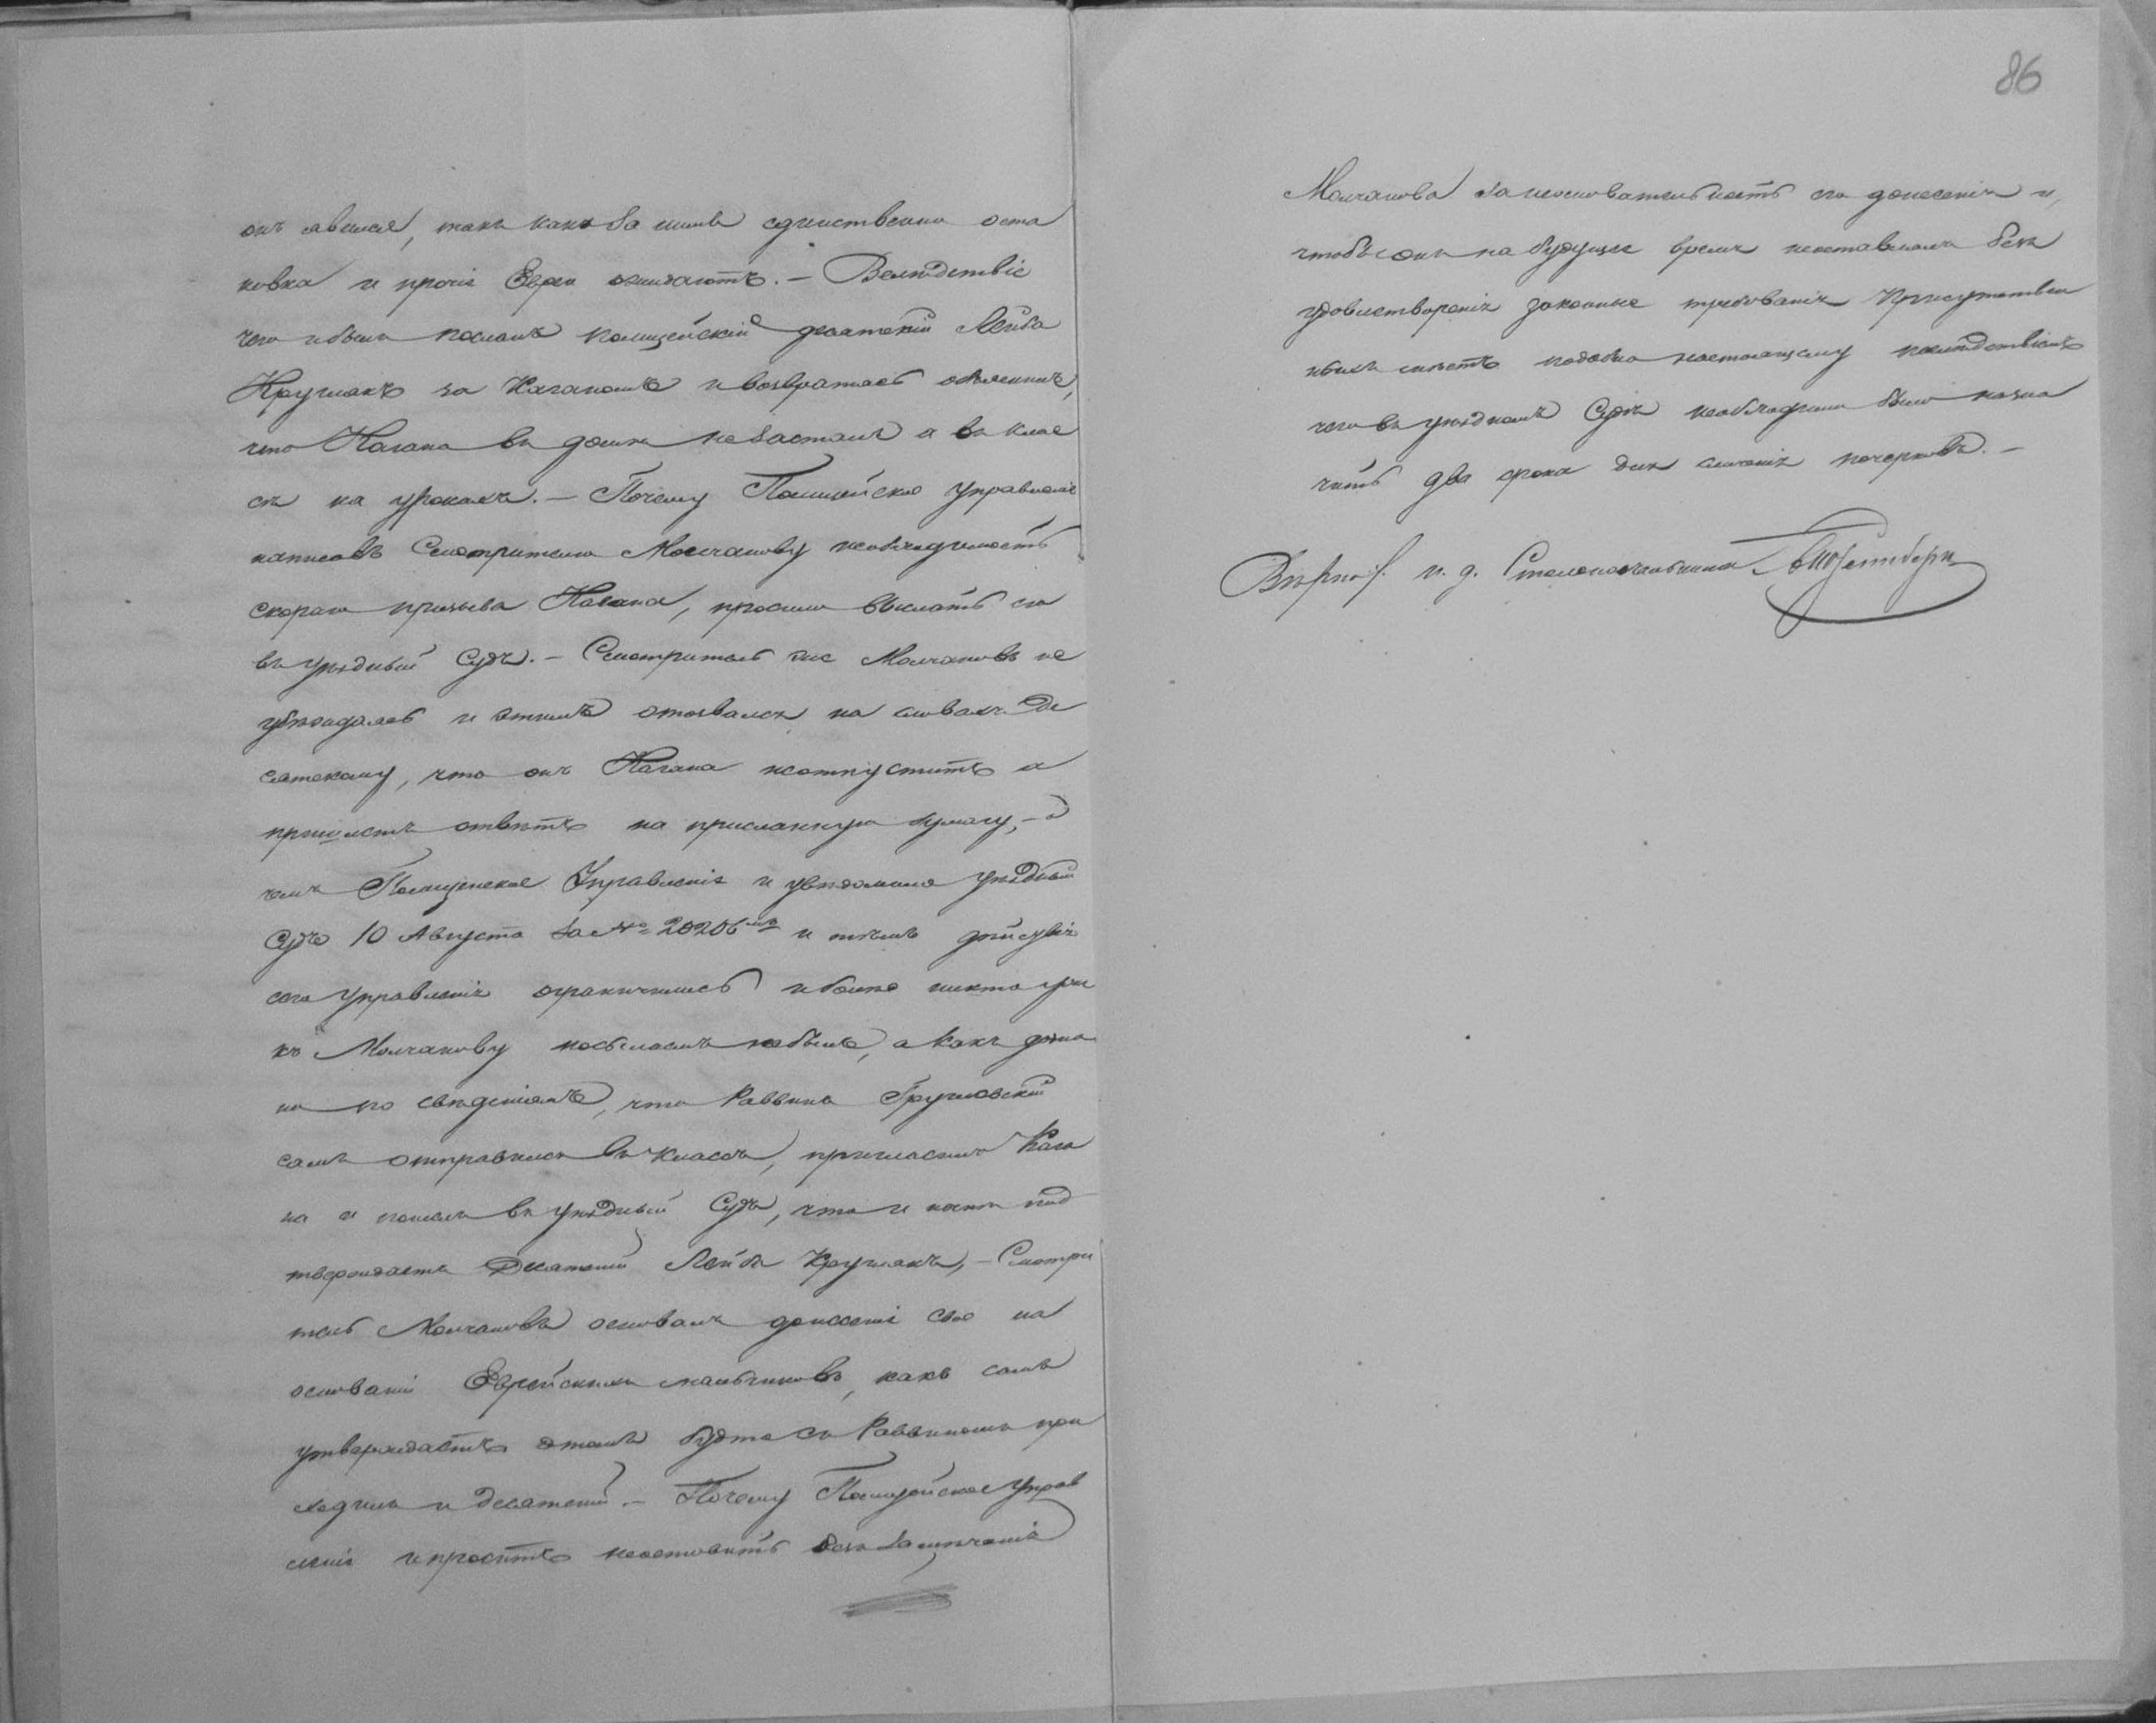 онъ явился, такъ какъ за нимъ единственно оста
новка и прочіе Евреи ожидаютъ. – Вслѣдствіе
чего и былъ посланъ полицейскій десятскій Лейба
Круглякъ за Каганомъ и возвратясь объяснилъ,
что Кагана въ домѣ незасталъ а въ клас
сѣ на урокахъ. – Почему Полицейское Управленіе
написавъ Смотрителю Молчанову необходимость
скораго призыва Кагана, просило выслать его
въ Уѣздный Судъ. – Смотритель же Молчановъ не
убѣждаясь и этимъ отозвался на словахъ Де
сятскому, что онъ Кагана неотпуститъ а
пришлетъ отвѣтъ на присланную бумагу, – о
чемъ Полицейское Управленіе и увѣдомило Уѣздный
Судъ 10 Августа за № 20206мъ и тѣмъ дѣйствіе
сего Управленія ограничилось и болѣе никто уже
къ Молчанову посылаемъ небылъ, а какъ дозна
но по свѣденіямъ, что Раввинъ
самъ отправился въ классъ, пригласилъ Кага
на и повелъ въ Уѣздный Судъ, что и нынѣ под
тверждаетъ Десятскій Лейба Круглякъ, – Смотри
тель Молчановъ основалъ донесеніе свое на
основаніи Еврейскихъ мальчиковъ, какъ самъ
утверждаетъ о томъ будто съ Раввиномъ при
ходилъ и десятскій. – Почему Полицейское Управ
леніе и проситъ неоставить безъ замѣчанія
86
Молчанова за неосновательность его донесенія и,
чтобы онъ на будущее время неоставлялъ безъ
удовлетворенія законные требованія Присутствен
подобно настоящему послѣдствіямъ
чего въ уѣздномъ Судѣ необходимо было назна
чить два срока для сличенія почерковъ. –
Вѣрно: И. д. Столоначальника